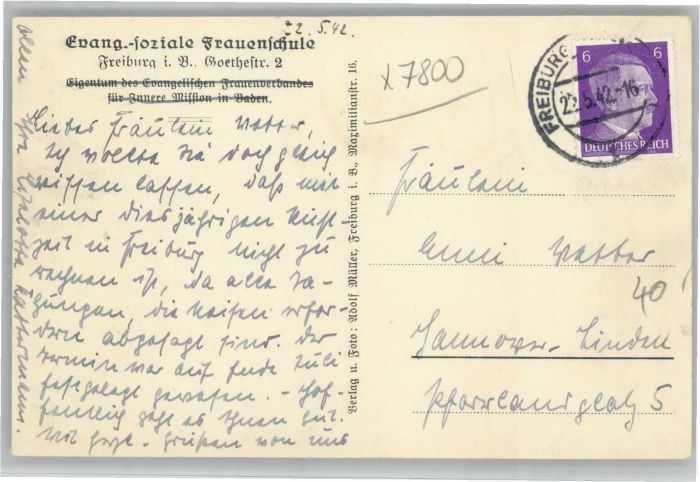 22.5.42.
Evang.-soziale Frauenschule
Freiburg i. B., Goethestr. 2
Eigentum des Evangelischen Frauenverbandes
für Innere Mission in Baden.
Liebes Fräulein Vetter,
Ich wollte Sie doch gleich
wissen lassen, daß mit
einer diesjährigen
zeit in Freiburg nicht zu
rechnen ist, da alle Ta-
gungen, die Reisen erfor-
dern abgesagt sind. Der
Termin war auf Ende Juli
festgelegt gewesen. – Hof-
fentlich geht es Ihnen gut.
Mit herzl. Grüßen von uns
allen Ihre Liselotte
Verlag u. Foto: Adolf Müller, Freiburg i. B., Maximilianstr. 16.
x 7800
FREIBURG
22.5.42.-16
6 6
DEUTSCHES REICH
Fräulein
Vetter
40
Hannover-Linden
5